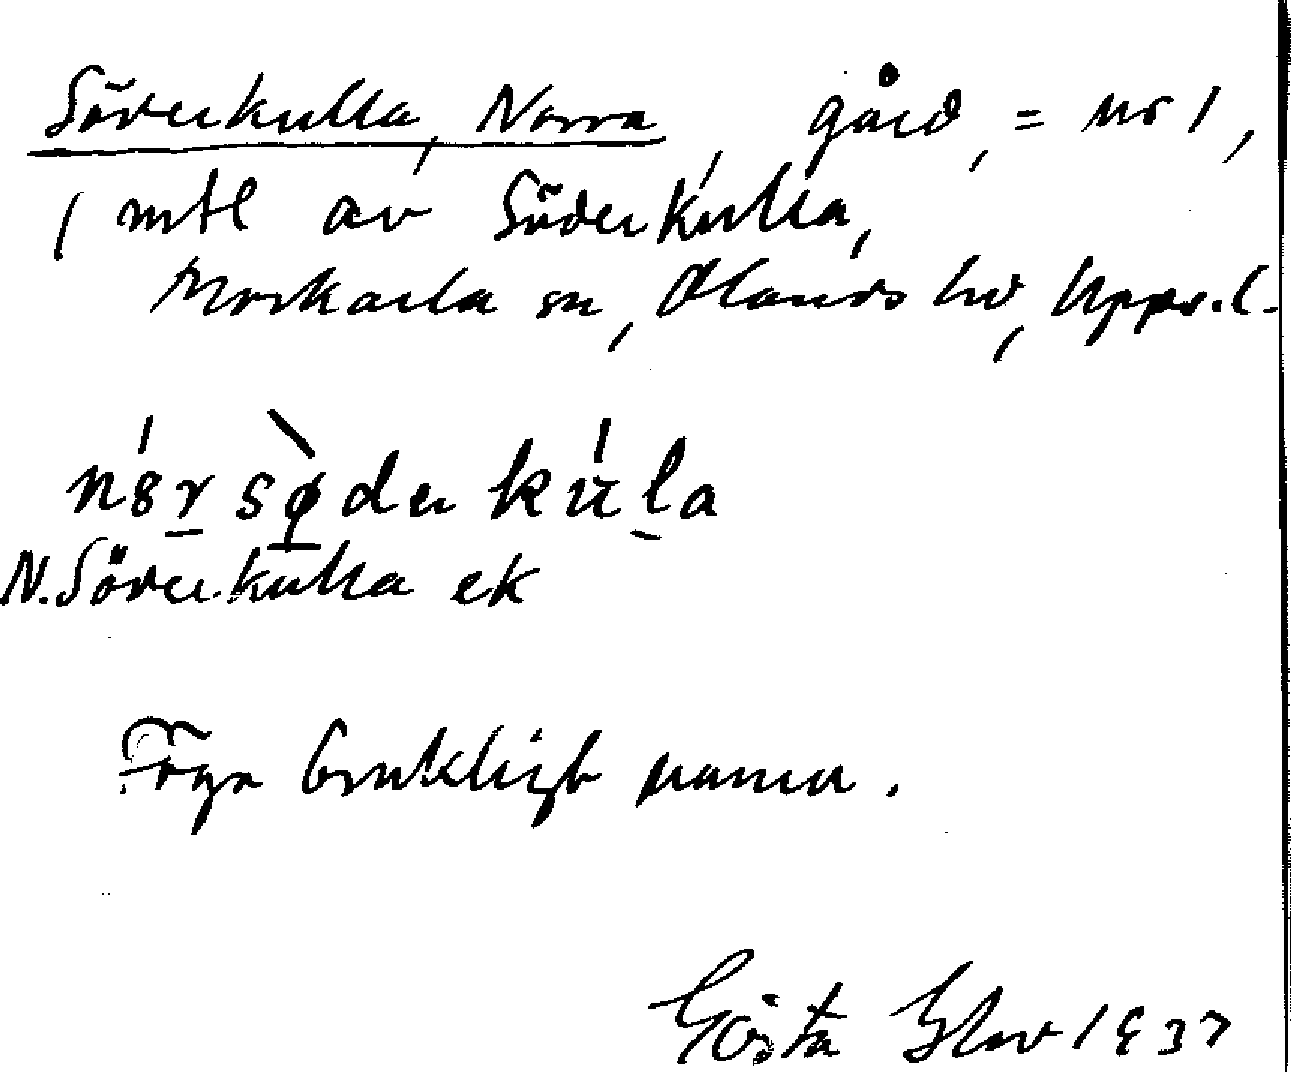 Söderkulla, Norra, gård, = nr 1,
1 mtl av Söderkulla,
Morkarla sn, Olands hd, Upps. l.
nór sø̀der kúla
N. Söderkulla ek
Föga brukligt namn.
Gösta 1937